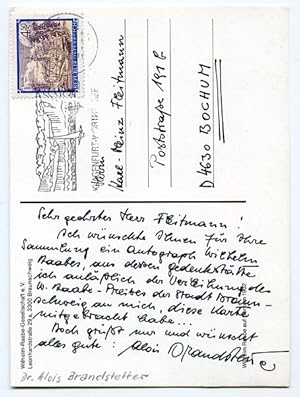 4.50
REPUBLIK ÖSTERREICH
KLAGENFURT-WÖRTHERSEE
Herrn
Karl-Heinz Fleitmann
Poststraße 191 E
D 4630 BOCHUM
Sehr geehrter Herr Fleitmann!
Ich wünschte Ihnen für Ihre
Sammlung ein Autograph Wilhelm
Raabes, aus dessen Gedenkstätte
ich anläßlich der Verleihung des
W. Raabe-Preises der Stadt Braun-
schweig an mich, diese Karte
mitgebracht habe...
Hoch grüßt nur und wünscht
alles gute: Alois Brandstetter
Wilhelm-Raabe-Gesellschaft e.V.
Leonhardstraße 29 a, 3300 Braunschweig
Wilhelm Raabe auf
Dr. Alois Brandstetter